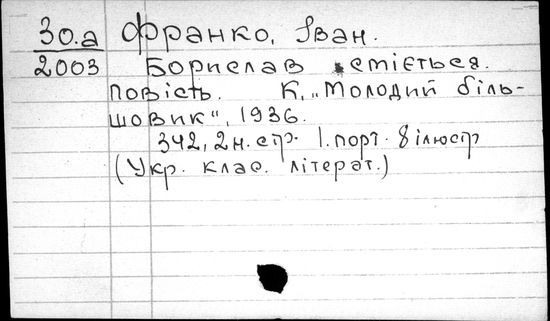 30.a Франко, Іван.
2003 Борислав сміється.
повість. К, „Молодий біль-
шовик", 1936.
342, 2 н. стр. 1. порт. 8 ілюстр
(Укр. клас. літерат.)